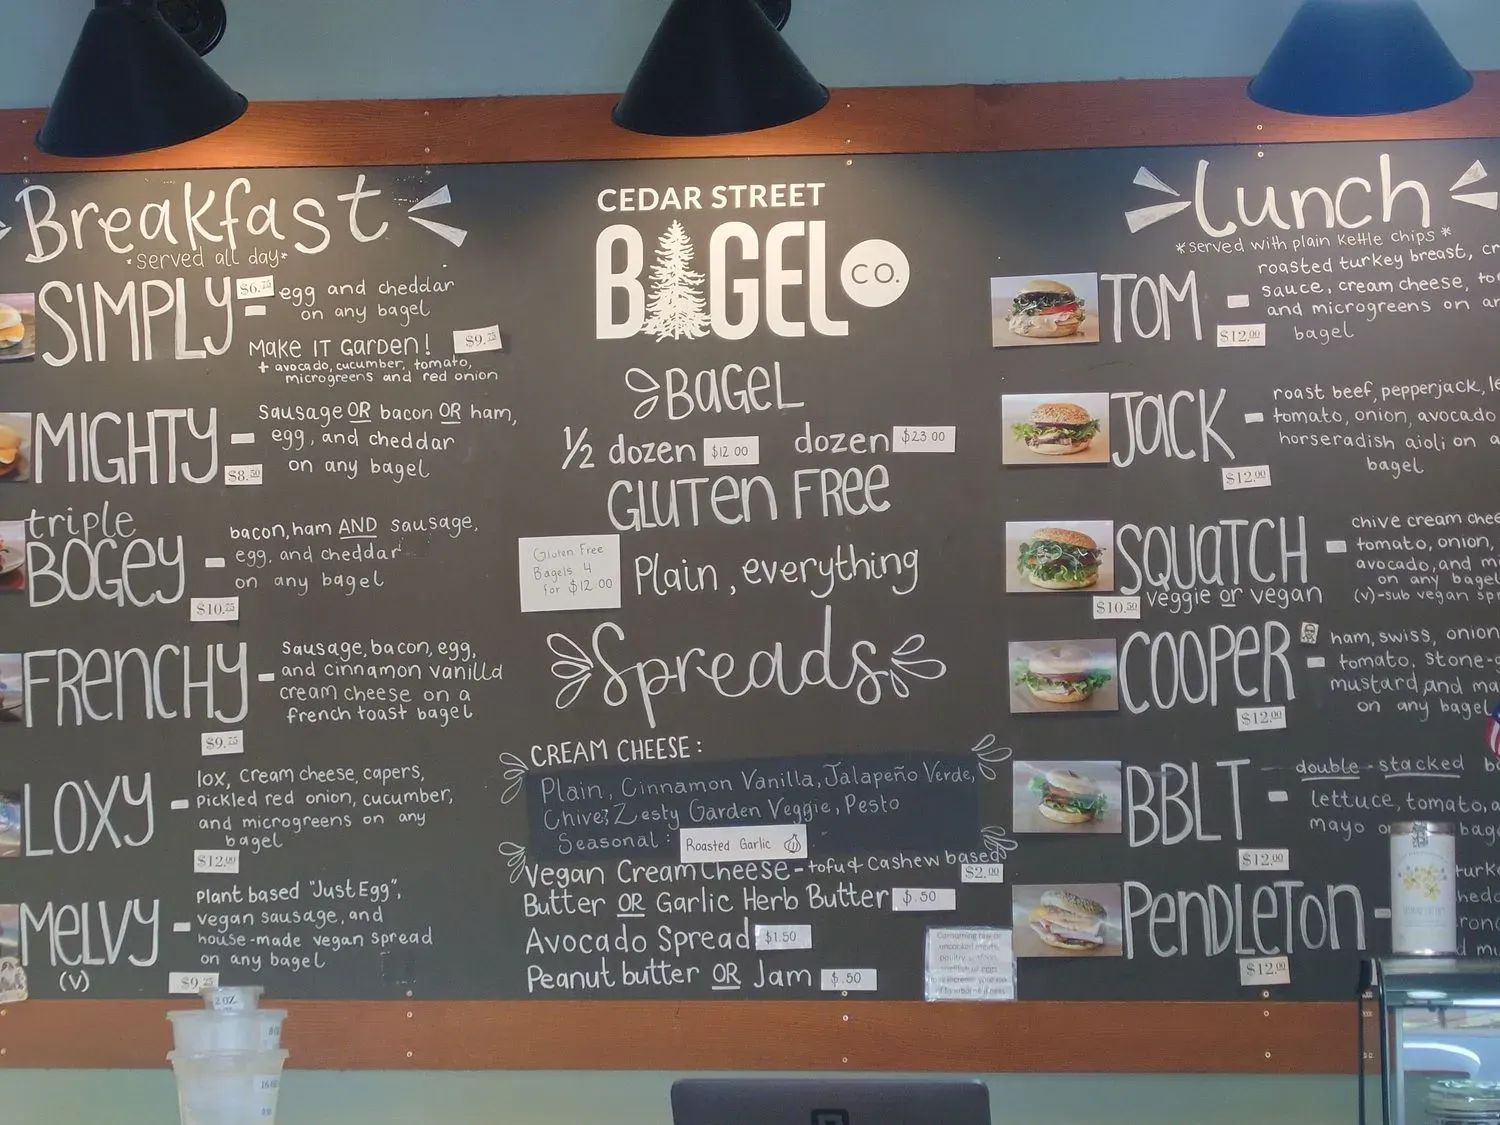 Breakfast
*served all day*
SIMPLY - $6.75 egg and cheddar
on any bagel
Make IT Garden! $9.75
+ avocado, cucumber, tomato,
microgreens and red onion
MIGHTY - sausage OR bacon OR ham,
egg, and cheddar
on any bagel
$8.50
triple
BOGEY - bacon, ham AND sausage,
egg, and cheddar
on any bagel
$10.75
FRENCHY - sausage, bacon, egg,
and cinnamon vanilla
cream cheese on a
french toast bagel
$9.75
LOXY - lox, cream cheese, capers,
pickled red onion, cucumber,
and microgreens on any
bagel
$12.00
MELVY - Plant based "Just Egg",
vegan sausage, and
house-made vegan spread
on any bagel
(V) $9.25
2 OZ.
CEDAR STREET
BAGEL CO.
BAGEL
1/2 dozen $12.00 dozen $23.00
GLUTEN FREE
Gluten Free
Bagels 4
for $12.00
Plain, everything
Spreads
CREAM CHEESE:
Plain, Cinnamon Vanilla, Jalapeño Verde,
Chive, Zesty Garden Veggie, Pesto
Seasonal: Roasted Garlic
Vegan Cream Cheese - tofu & cashew based
$2.00
Butter OR Garlic Herb Butter $.50
Avocado Spread $1.50
Peanut butter OR Jam $.50
Lunch
*served with plain kettle chips*
TOM - roasted turkey breast,
sauce, cream cheese,
and microgreens on
bagel
$12.00
JACK - roast beef, pepperjack,
tomato, onion, avocado
horseradish aioli on
bagel
$12.00
SQUATCH - chive cream
tomato, onion,
avocado, and
on any bagel
veggie or vegan (v)-sub vegan
$10.50
COOPER - ham, swiss, onion
tomato,
mustard, and
on any bagel
$12.00
BBLT - double-stacked
lettuce, tomato,
mayo
$12.00
PENDLETON -
$12.00